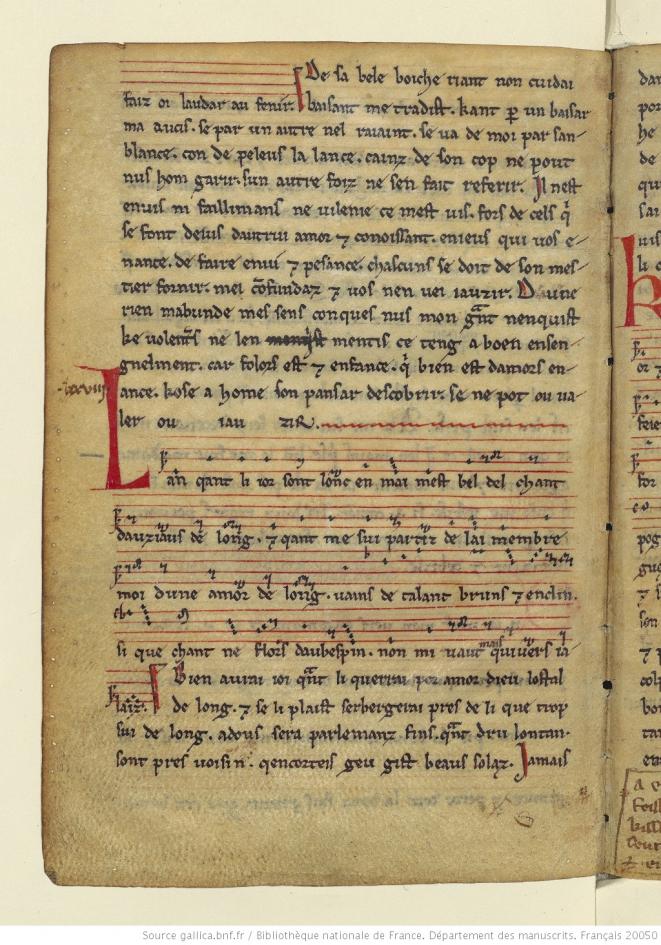 De sa bele boiche riant non cuidai
faiz oi laudar au fenir. baisant me tradist. kant ꝑ un baisar
ma aucis. se par un autre nel raiaint. se va de moi par san-
blance. con de peleus la lance. cainz de son cop ne pout
nus hom garir. sun autre foiz ne sen fait referir. Il nest
envis ni faillimans ne vilenie ce mest vis. fors de cels q̇
se font devis dautrui amor ⁊ conoissant. enieus qui vos e-
nance. de faire envi ⁊ pesance. chascuns se doit de son mes-
tier fornir. mei cōfundaz ⁊ vos nen vei iauzir. D une
rien mabunde mes sens conques nus mon gn̄t nenquist
ke volenters ne len mentis ce teng a boen ensen-
gnelment. car folors est ⁊ enfance. q̇ bien est damors en-
lance. kose a home son pansar descobrir. se ne pot ou va-
ler ou iau ziR.
Lan qant li ior sont lonc en mai mest bel del chant
dauziaus de long. ⁊ qant me sui partiz de lai membre
moi dune amor de long. vains de talant bruns ⁊ enclin.
si que chant ne flors daubespin. non mi vaut mais quivers ia
laiz. Bien avrai ioi qn̄t li querrai por amor dieu lostal
de long. ⁊ se li plaist serbergerai pres de li que trop
sui de long. adous sera parlemanz fins. qn̄t dru lontan-
sont pres voisin. qencorteis geu gist beaus solaz. Jamais
Source gallica.bnf.fr / Bibliothèque nationale de France. Département des manuscrits. Français 20050